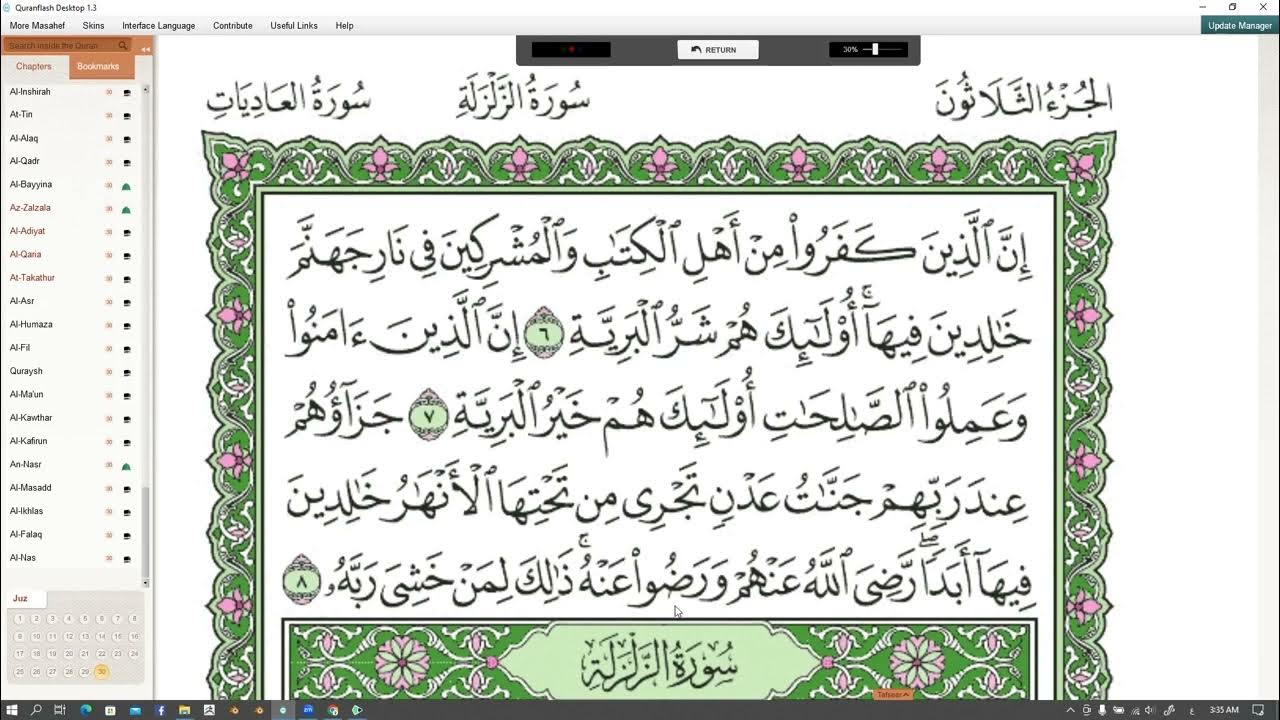 Quranflash Desktop 1.3
More Masahef Skins Interface Language Contribute Useful Links Help
Update Manager
Search inside the Quran
Chapters Bookmarks
RETURN
30%
Al-Inshirah 30
At-Tin 30
Al-Alaq 30
Al-Qadr 30
Al-Bayyina 30
Az-Zalzala 30
Al-Adiyat 30
Al-Qaria 30
At-Takathur 30
Al-Asr 30
Al-Humaza 30
Al-Fil 30
Quraysh 30
Al-Ma'un 30
Al-Kawthar 30
Al-Kafirun 30
An-Nasr 30
Al-Masadd 30
Al-Ikhlas 30
Al-Falaq 30
Al-Nas 30
Juz
1 2 3 4 5 6 7 8
9 10 11 12 13 14 15 16
17 18 19 20 21 22 23 24
25 26 27 28 29 30
الجُزْءُ الثَّلَاثُونَ سُورَةُ الزَّلْزَلَةِ سُورَةُ العَادِيَاتِ
إِنَّ ٱلَّذِينَ كَفَرُوا۟ مِنْ أَهْلِ ٱلْكِتَٰبِ وَٱلْمُشْرِكِينَ فِى نَارِ جَهَنَّمَ
خَٰلِدِينَ فِيهَآ ۚ أُو۟لَٰٓئِكَ هُمْ شَرُّ ٱلْبَرِيَّةِ ٦ إِنَّ ٱلَّذِينَ ءَامَنُوا۟
وَعَمِلُوا۟ ٱلصَّٰلِحَٰتِ أُو۟لَٰٓئِكَ هُمْ خَيْرُ ٱلْبَرِيَّةِ ٧ جَزَآؤُهُمْ
عِندَ رَبِّهِمْ جَنَّٰتُ عَدْنٍ تَجْرِى مِن تَحْتِهَا ٱلْأَنْهَٰرُ خَٰلِدِينَ
فِيهَآ أَبَدًا ۖ رَّضِىَ ٱللَّهُ عَنْهُمْ وَرَضُوا۟ عَنْهُ ۚ ذَٰلِكَ لِمَنْ خَشِىَ رَبَّهُۥ ٨
سُورَةُ الزَّلْزَلَةِ
Tafseer
3:35 AM